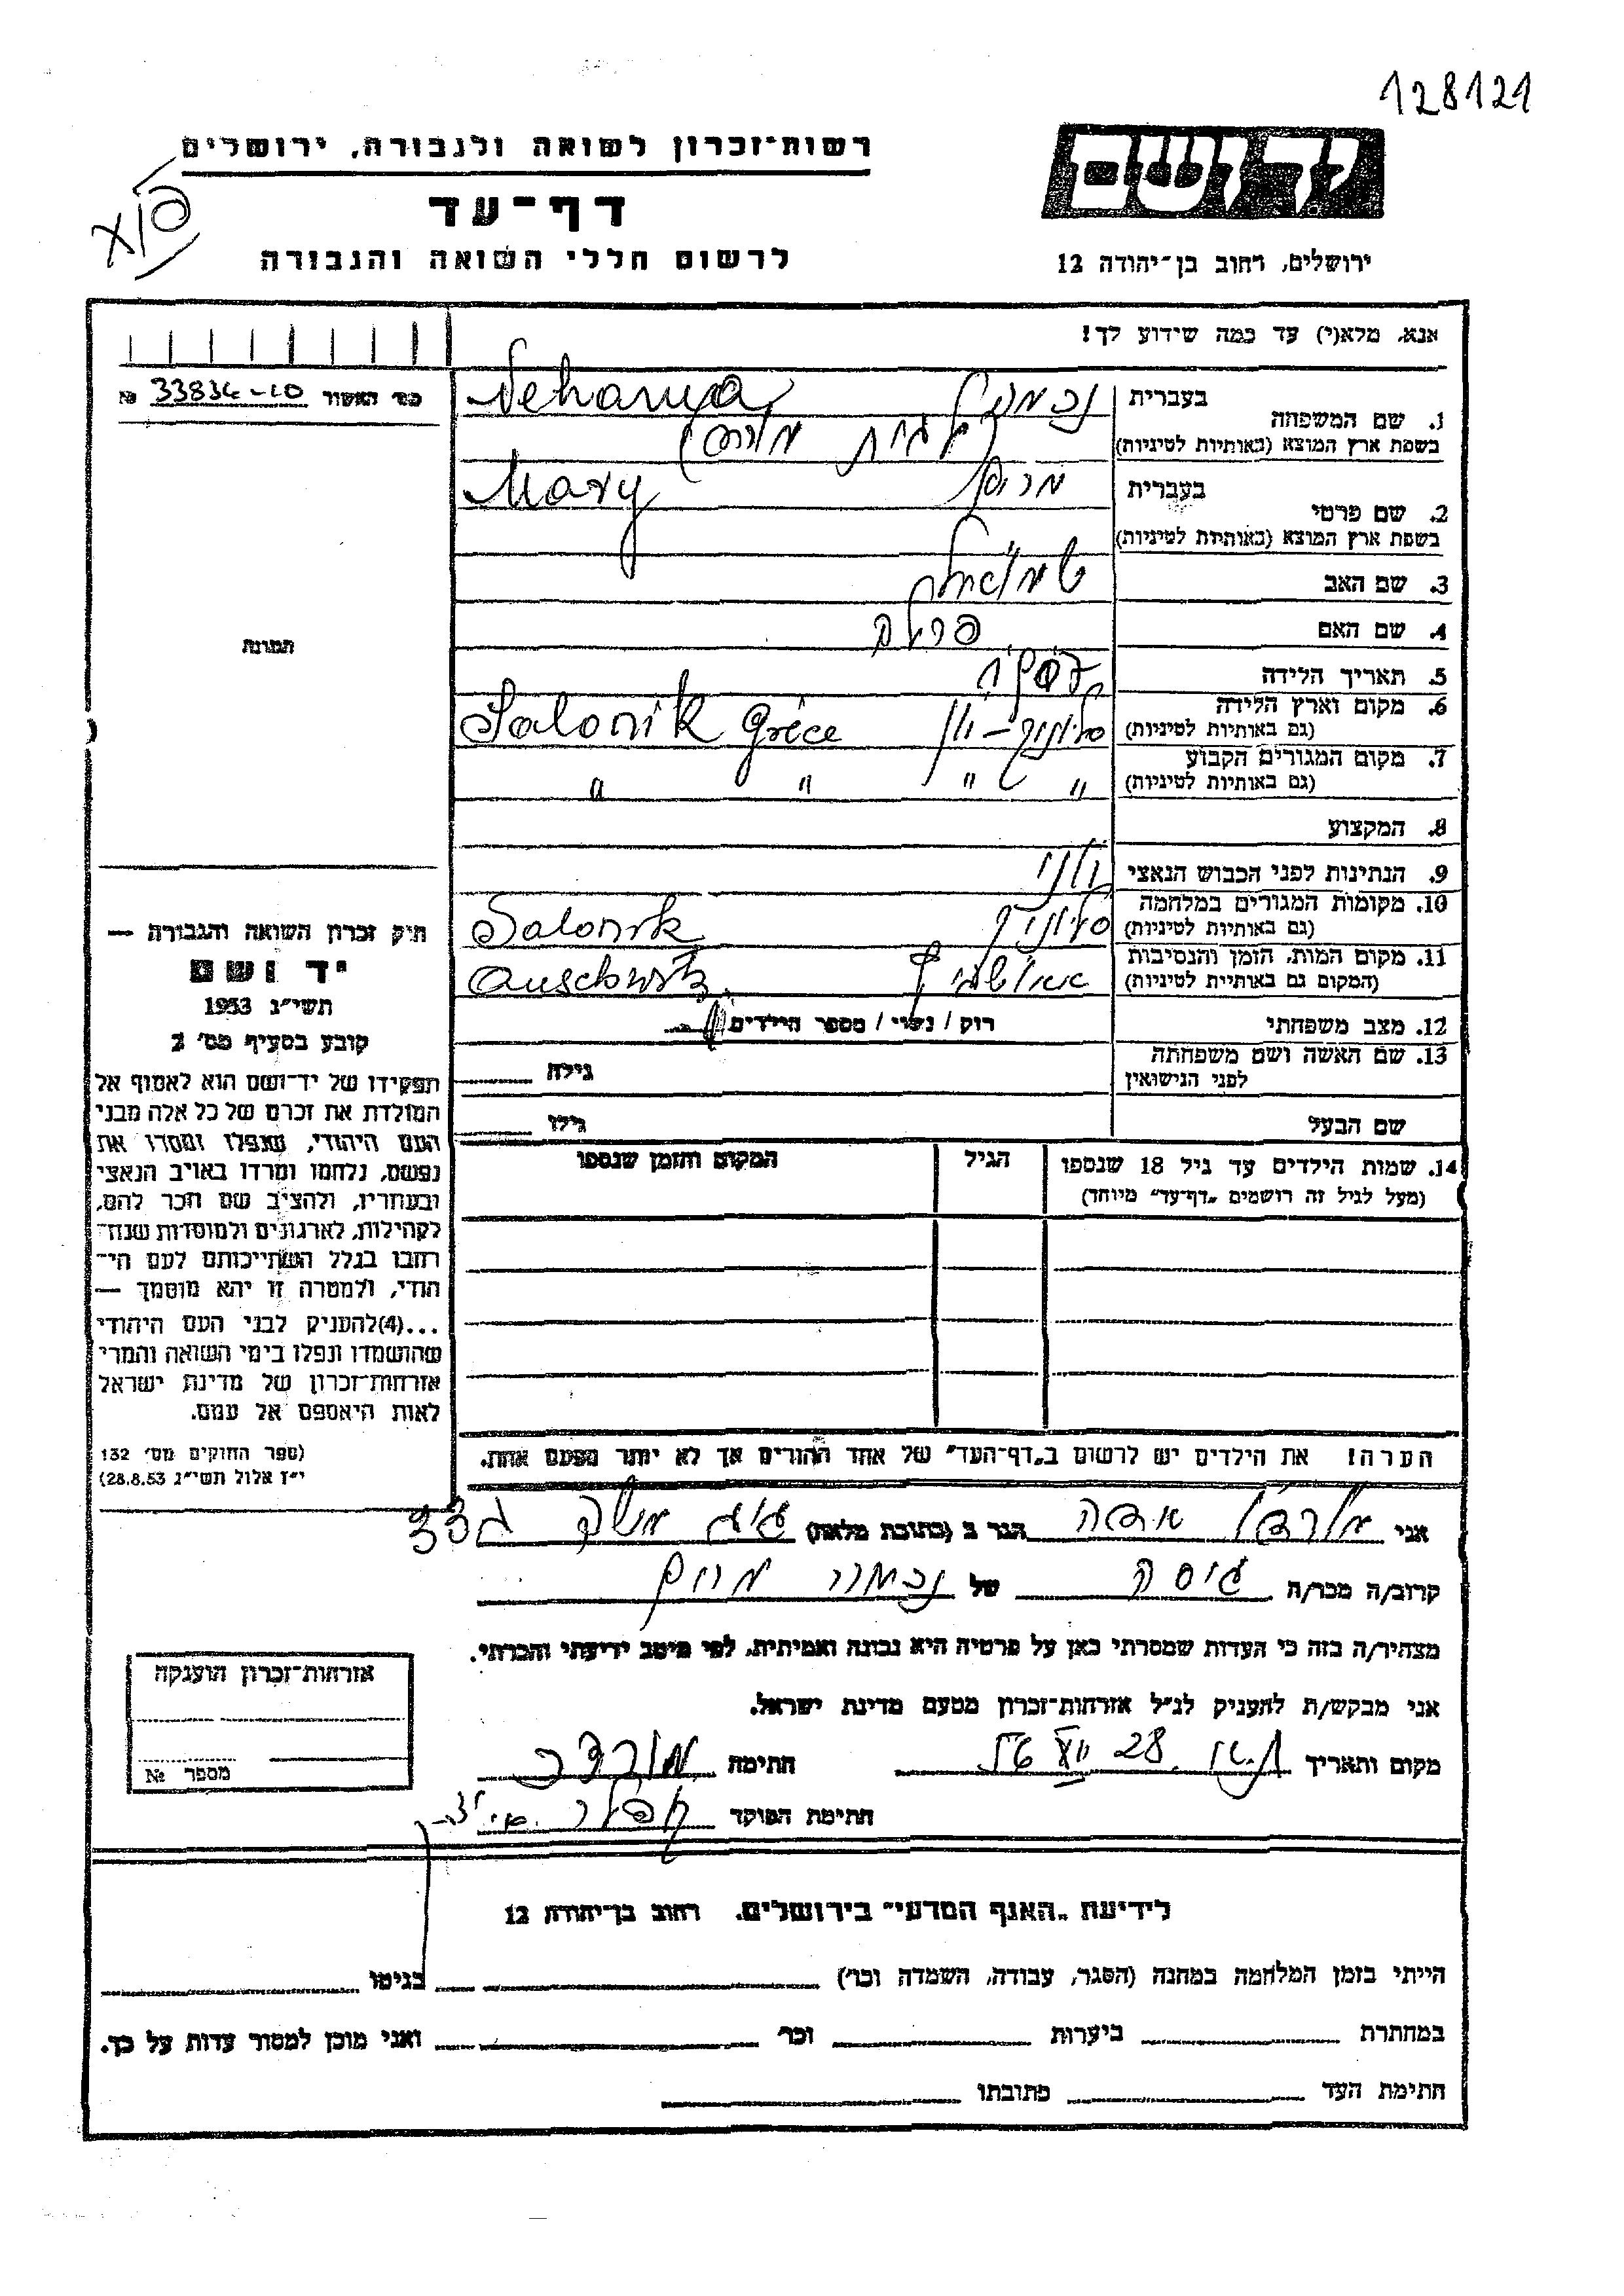 128121
רשות־זכרון לשואה ולגבורה, ירושלים
יד ושם
דף־עד
לרשום חללי השואה והגבורה
ירושלים, רחוב בן־יהודה 12
אנא, מלא(י) עד כמה שידוע לך!
מס׳ האשור № 33834-10
1. שם המשפחה בעברית
בשפת ארץ המוצא (באותיות לטיניות) Nehamya
2. שם פרטי בעברית מרים
בשפת ארץ המוצא (באותיות לטיניות) Mary
3. שם האב שמואל
4. שם האם פרלה
5. תאריך הלידה
6. מקום וארץ הלידה סלוניק – יון
(גם באותיות לטיניות) Salonik Grèce
7. מקום המגורים הקבוע " "
(גם באותיות לטיניות) " "
8. המקצוע
9. הנתינות לפני הכבוש הנאצי יוני
10. מקומות המגורים במלחמה סלוניק
(גם באותיות לטיניות) Salonik
11. מקום המות, הזמן והנסיבות אאושביץ
(המקום גם באותיות לטיניות) Auschwitz
12. מצב משפחתי רוק / נשוי / מספר הילדים
13. שם האשה ושם משפחתה גילה
לפני הנישואין
שם הבעל גילו
14. שמות הילדים עד גיל 18 שנספו הגיל המקום והזמן שנספו
(מעל לגיל זה רושמים „דף־עד״ מיוחד)
הערה! את הילדים יש לרשום ב„דף־העד״ של אחד ההורים אך לא יותר מפעם אחת.
תמונה
חוק זכרון השואה והגבורה —
יד ושם
תשי״ג 1953
קובע בסעיף מס׳ 2
תפקידו של יד־ושם הוא לאסוף אל
המולדת את זכרם של כל אלה מבני
העם היהודי, שנפלו ומסרו את
נפשם, נלחמו ומרדו באויב הנאצי
ובעוזריו, ולהציב שם וזכר להם,
לקהילות, לארגונים ולמוסדות שנח־
רבו בגלל השתייכותם לעם הי־
הודי, ולמטרה זו יהא מוסמך —
...(4) להעניק לבני העם היהודי
שהושמדו ונפלו בימי השואה והמרי
אזרחות־זכרון של מדינת ישראל
לאות היאספם אל עמם.
(ספר החוקים מס׳ 132
י״ז אלול תשי״ג 28.8.53)
אני הגר ב (כתובת מלאה)
קרוב/ה מכר/ה גיסה של נחמיה מרים
מצהיר/ה בזה כי העדות שמסרתי כאן על פרטיה היא נכונה ואמיתית, לפי מיטב ידיעתי והכרתי.
אני מבקש/ת להעניק לנ״ל אזרחות־זכרון מטעם מדינת ישראל.
מקום ותאריך 28 חתימה
חתימת הפוקד
אזרחות־זכרון הוענקה
מספר №
לידיעת „האגף המדעי״ בירושלים, רחוב בן־יהודה 12
הייתי בזמן המלחמה במחנה (הסגר, עבודה, השמדה וכו׳) בגיטו
במחתרת ביערות וכו׳ ואני מוכן למסור עדות על כך.
חתימת העד כתובתו